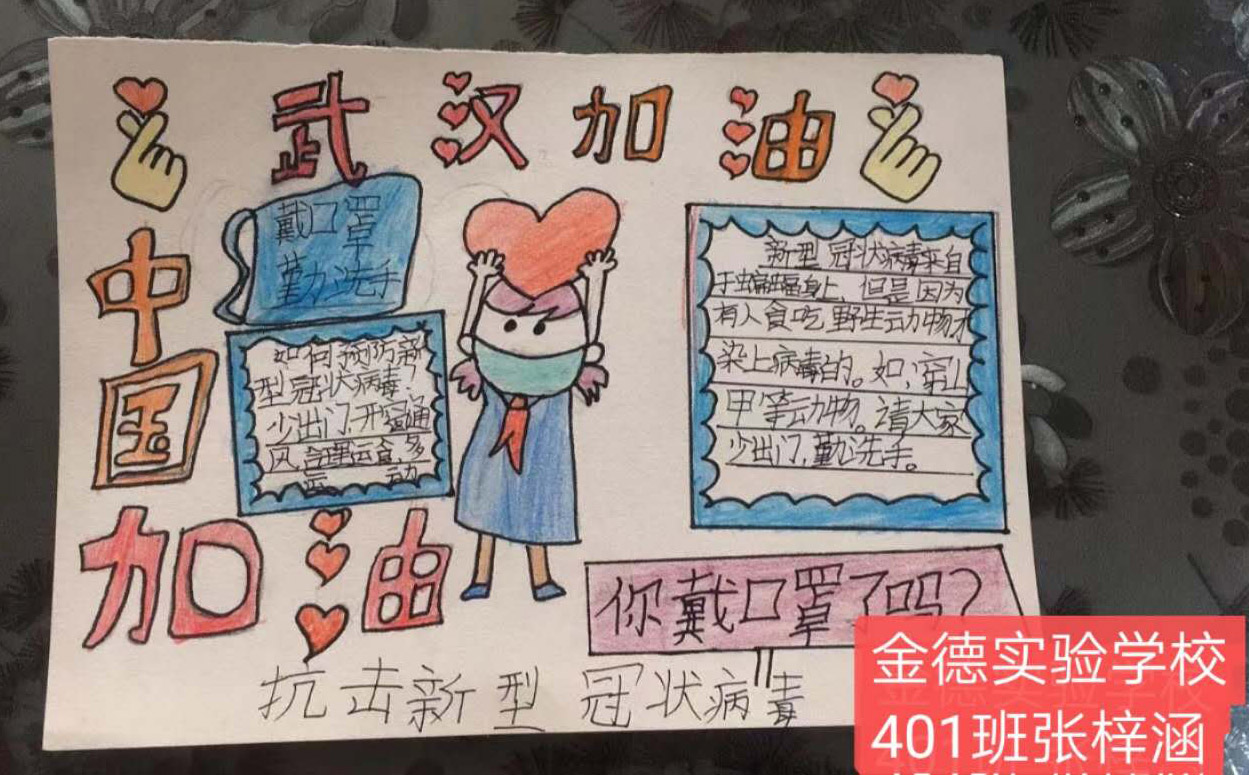 武汉加油
中国
加油
戴口罩
勤洗手
如何预防新
型冠状病毒?
少出门,开窗通
风,合理运食,多
运动
新型冠状病毒来自
于蝙蝠身上,但是因为
有人食吃野生动物才
染上病毒的。如,穿山
甲等动物。请大家
少出门,勤洗手。
你戴口罩了吗?
抗击新型冠状病毒
金德实验学校
401班张梓涵